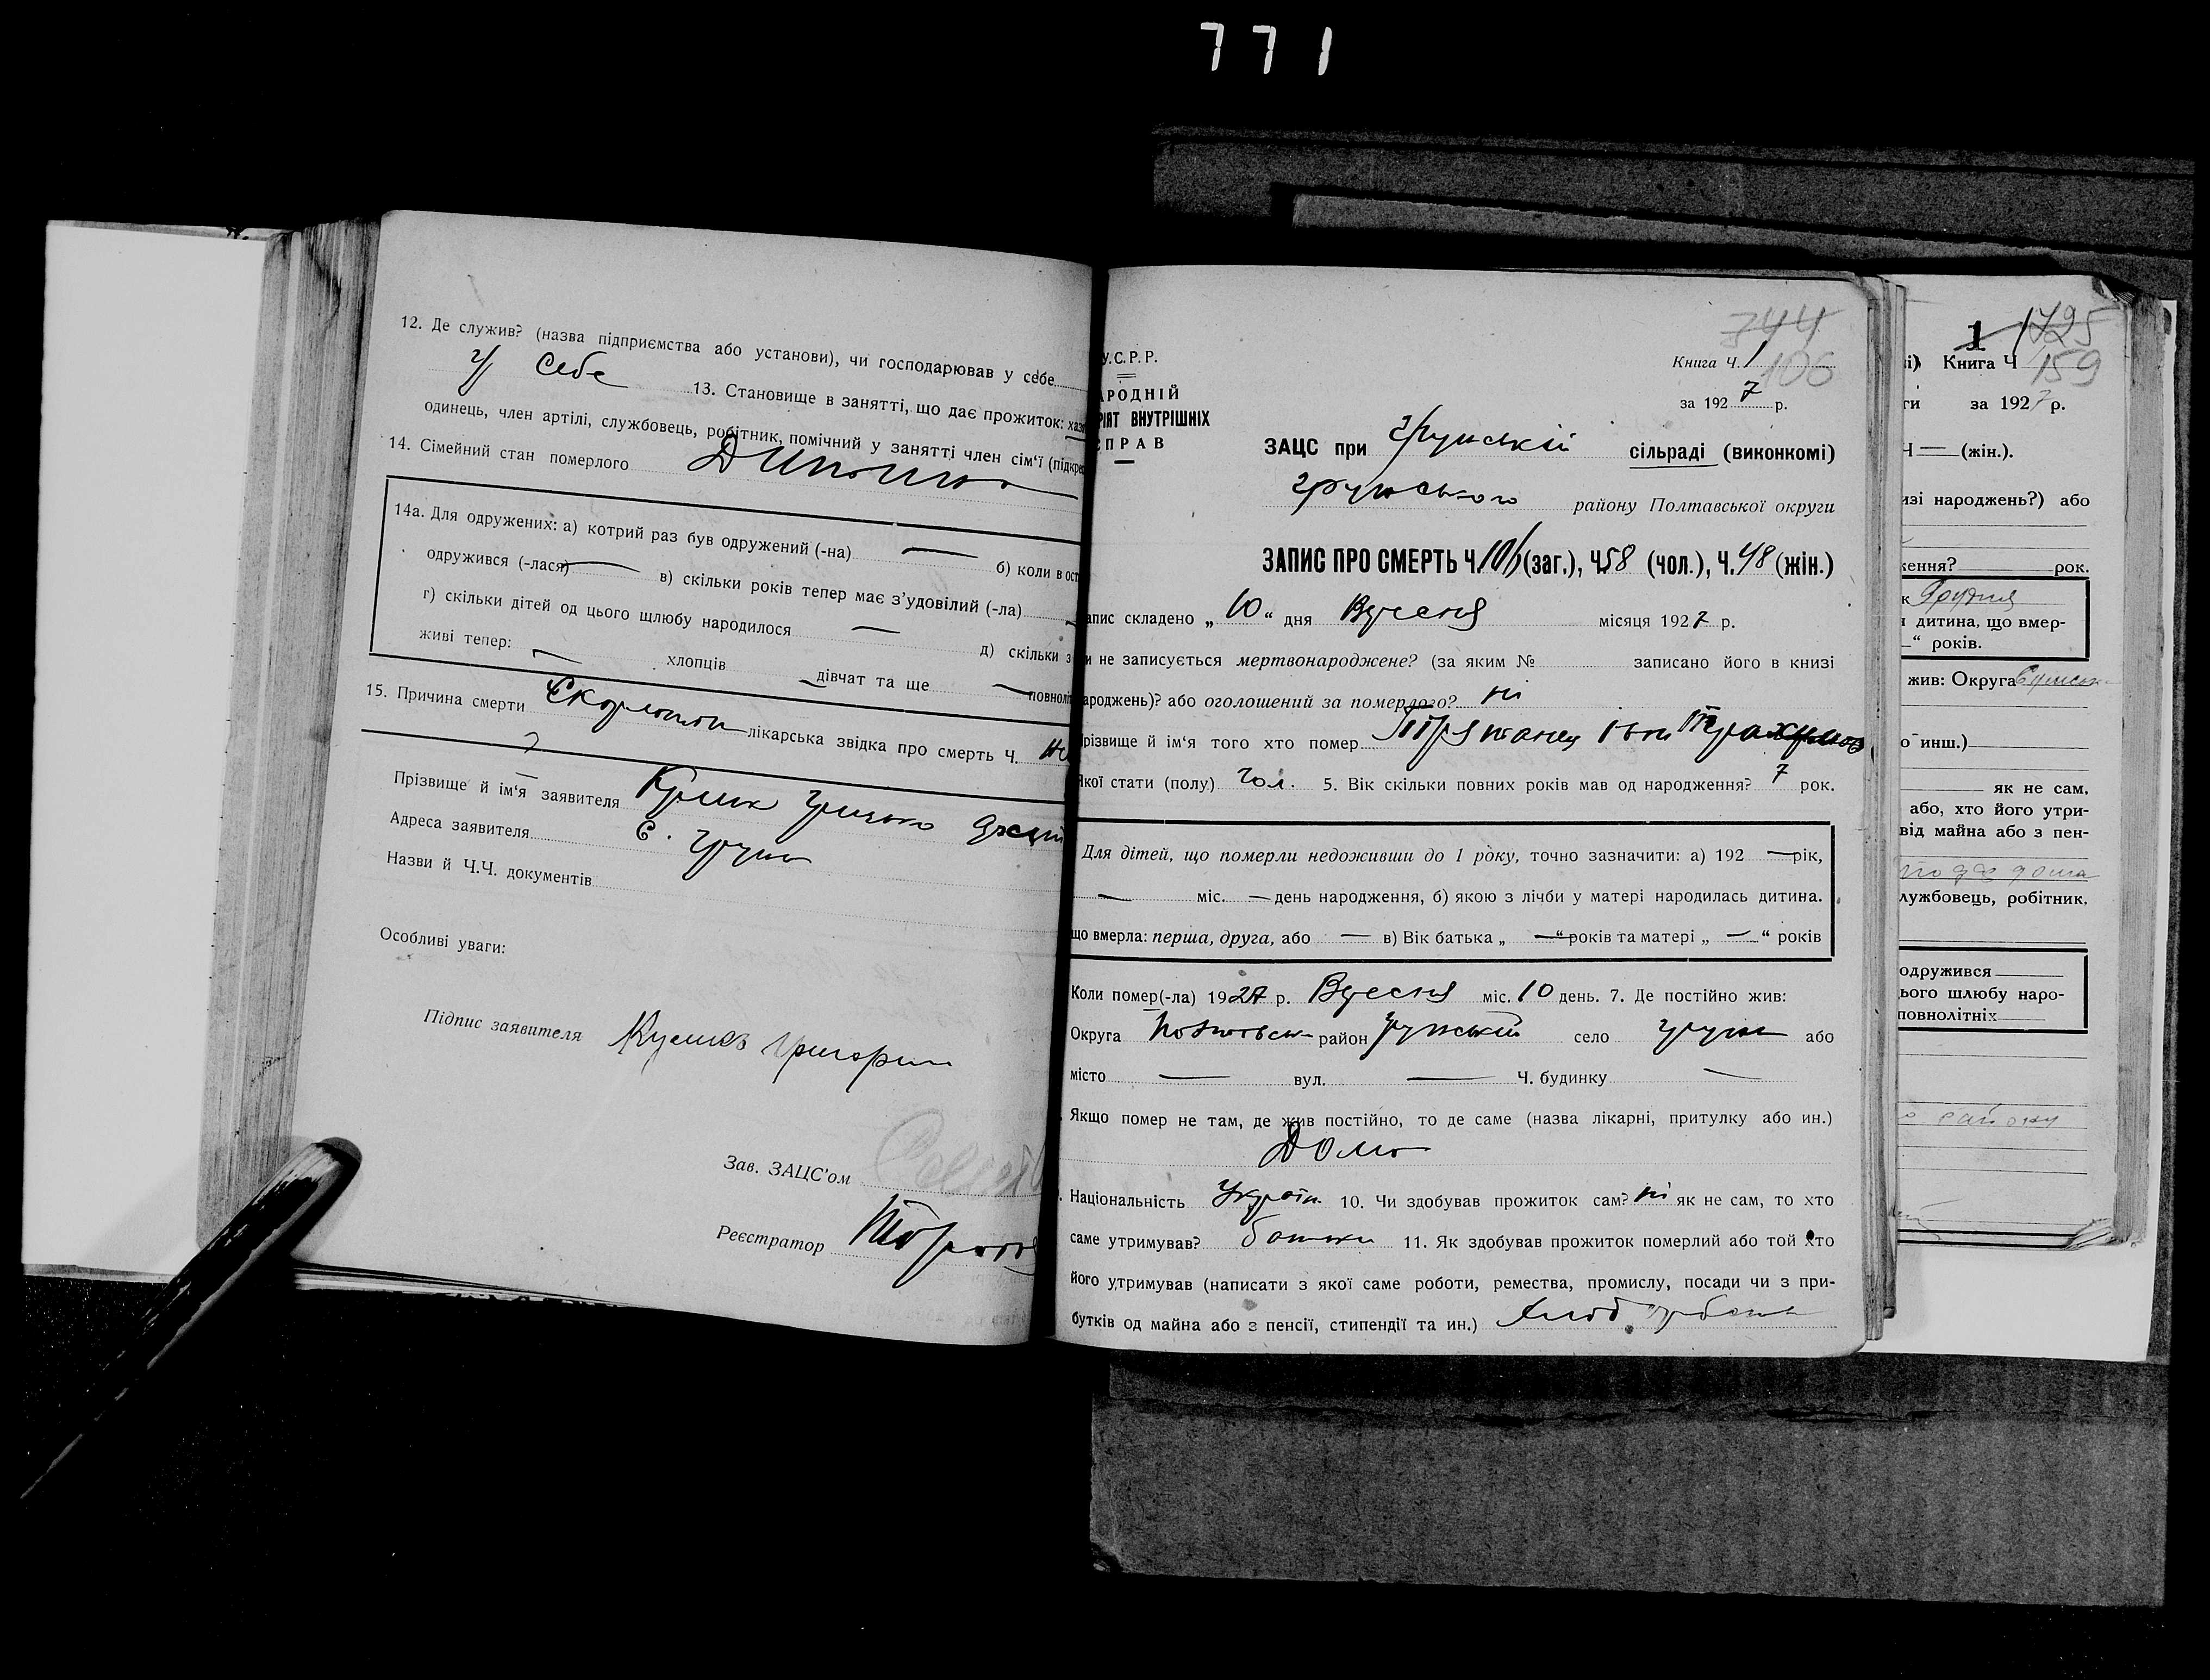 771
12. Де служив? (назва підприємства або установи), чи господарював у себе
у себе 13. Становище в занятті, що дає прожиток:
одинець, член артілі, службовець, робітник, помічний у занятті член сім'ї
14. Сімейний стан померлого
14а. Для одружених: а) котрий раз був одружений (-на) — б) коли в
одружився (-лася) — в) скільки років тепер має з'удовілий (-ла)
г) скільки дітей од цього шлюбу народилося — д) скільки з
живі тепер: — хлопців — дівчат та ще —
15. Причина смерти лікарська звідка про смерть Ч.
Прізвище й ім'я заявителя Кулик Грицько
Адреса заявителя с. Грунь
Назви й Ч.Ч. документів
Особливі уваги:
Підпис заявителя Григорий
Зав. ЗАЦС'ом
Реєстратор
У.С.Р.Р.
АРОДНІЙ
РІЯТ ВНУТРІШНІХ
СПРАВ
744
Книга Ч. 1
106
за 1927 р.
ЗАЦС при Грунській сільраді (виконкомі)
Грунського району Полтавської округи
ЗАПИС ПРО СМЕРТЬ Ч. 106 (заг.), Ч. 58 (чол.), Ч. 48 (жін.)
апис складено „10“ дня Вересня місяця 1927 р.
и не записується мертвонароджене? (за яким № записано його в книзі
ароджень)? або оголошений за померлого? ні
різвище й ім'я того хто помер
Якої стати (полу) Чол. 5. Вік скільки повних років мав од народження? 7 рок.
Для дітей, що померли недоживши до 1 року, точно зазначити: а) 192 — рік,
— міс. — день народження, б) якою з лічби у матері народилась дитина.
що вмерла: перша, друга, або — в) Вік батька „ — “ років та матері „ — “ років
Коли помер(-ла) 1927 р. Вересня міс. 10 день. 7. Де постійно жив:
Округа район Грунський село Грунь або
місто — вул. — Ч. будинку —
Якщо помер не там, де жив постійно, то де саме (назва лікарні, притулку або ин.)
Дома
Національність Україн. 10. Чи здобував прожиток сам? ні як не сам, то хто
саме утримував? батьки 11. Як здобував прожиток померлий або той хто
його утримував (написати з якої саме роботи, ремества, промислу, посади чи з при-
бутків од майна або з пенсії, стипендії та ин.)
1 1725
і) Книга Ч 159
ти за 1927 р.
Ч — (жін.).
изі народжень?) або
ження? рок.
к Грудня
дитина, що вмер-
“ років.
жив: Округа
о инш.)
як не сам,
або, хто його утри-
від майна або з пен-
службовець, робітник,
одружився
ього шлюбу наро-
повнолітніх
району